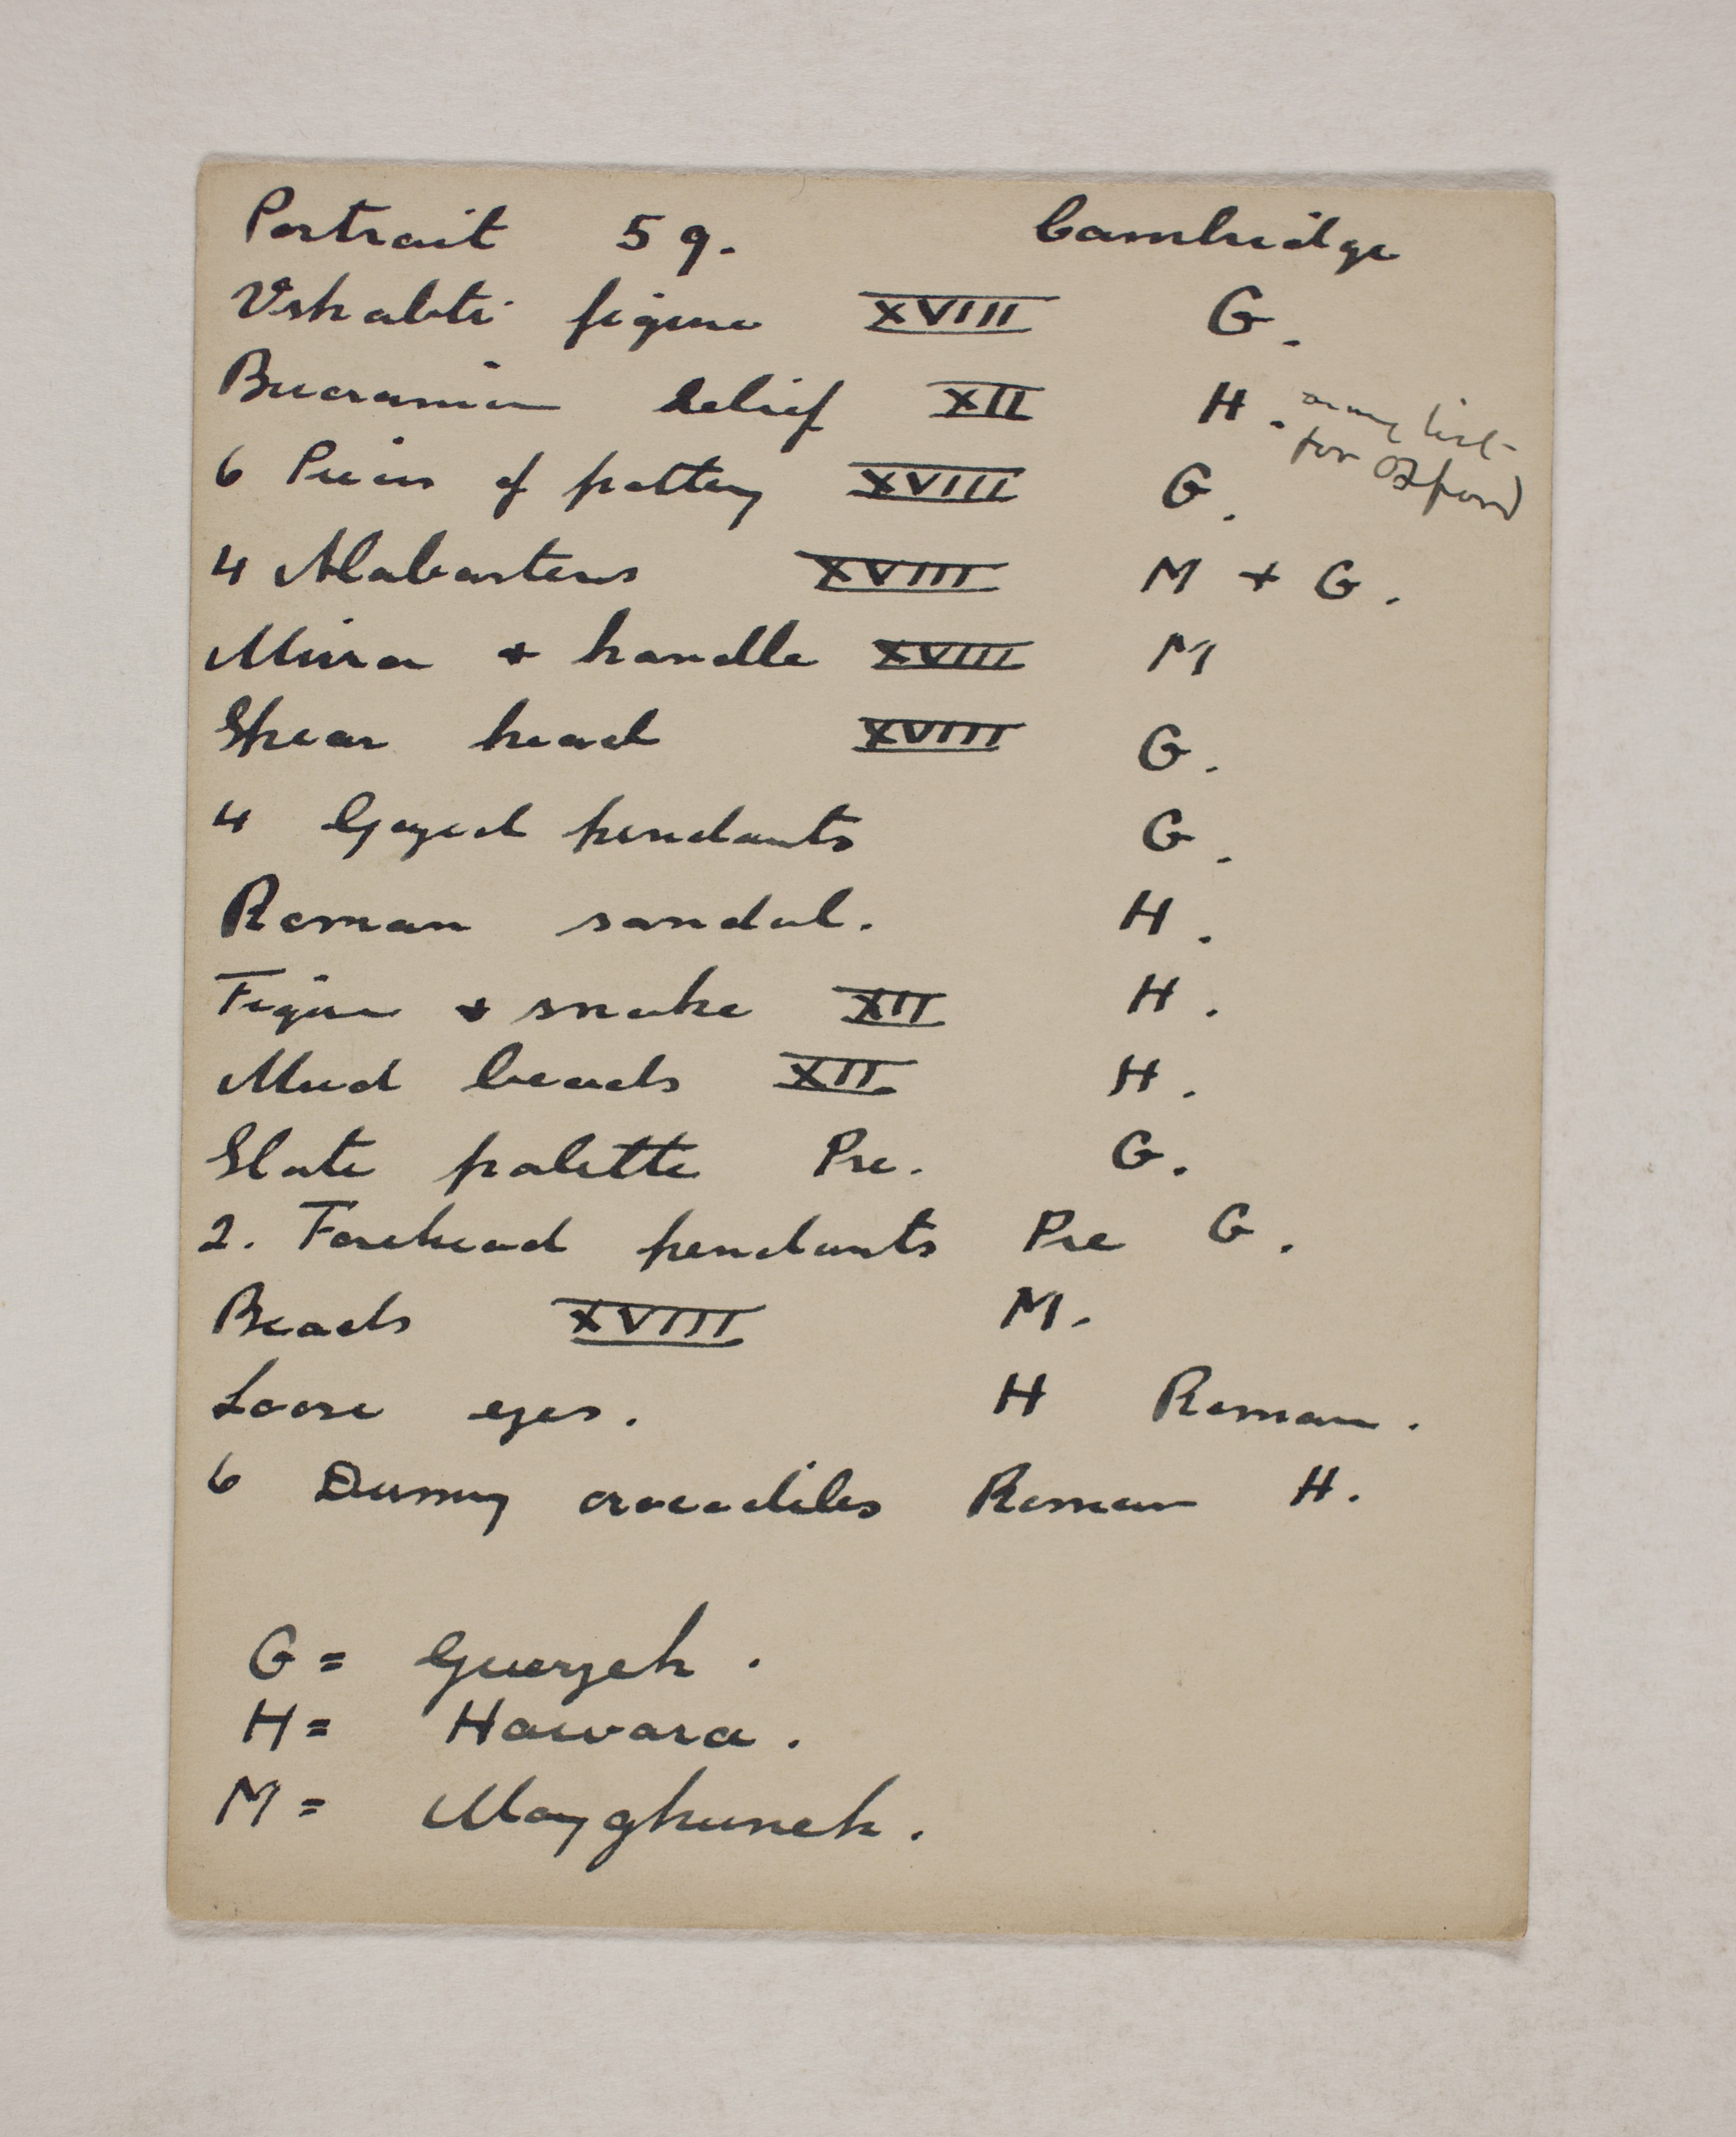 Portrait 59. Cambridge
Ushabti figure XVIII G.
Bucranium relief XII H. on my list
for Oxford
6 Pieces of pottery XVIII G.
4 Alabasters XVIII M + G.
Mirror + handle XVIII M
Spear head XVIII G.
4 Glazed pendants G.
Roman sandal. H.
Figure + snake XII H.
Mud beads XII. H.
Slate palette Pre. G.
2. Forehead pendants Pre G.
Beads XVIII M.
Loose eyes. H Roman.
6 Dummy crocodiles Roman H.
G = Guerzeh.
H = Hawara.
M = Mayghuneh.